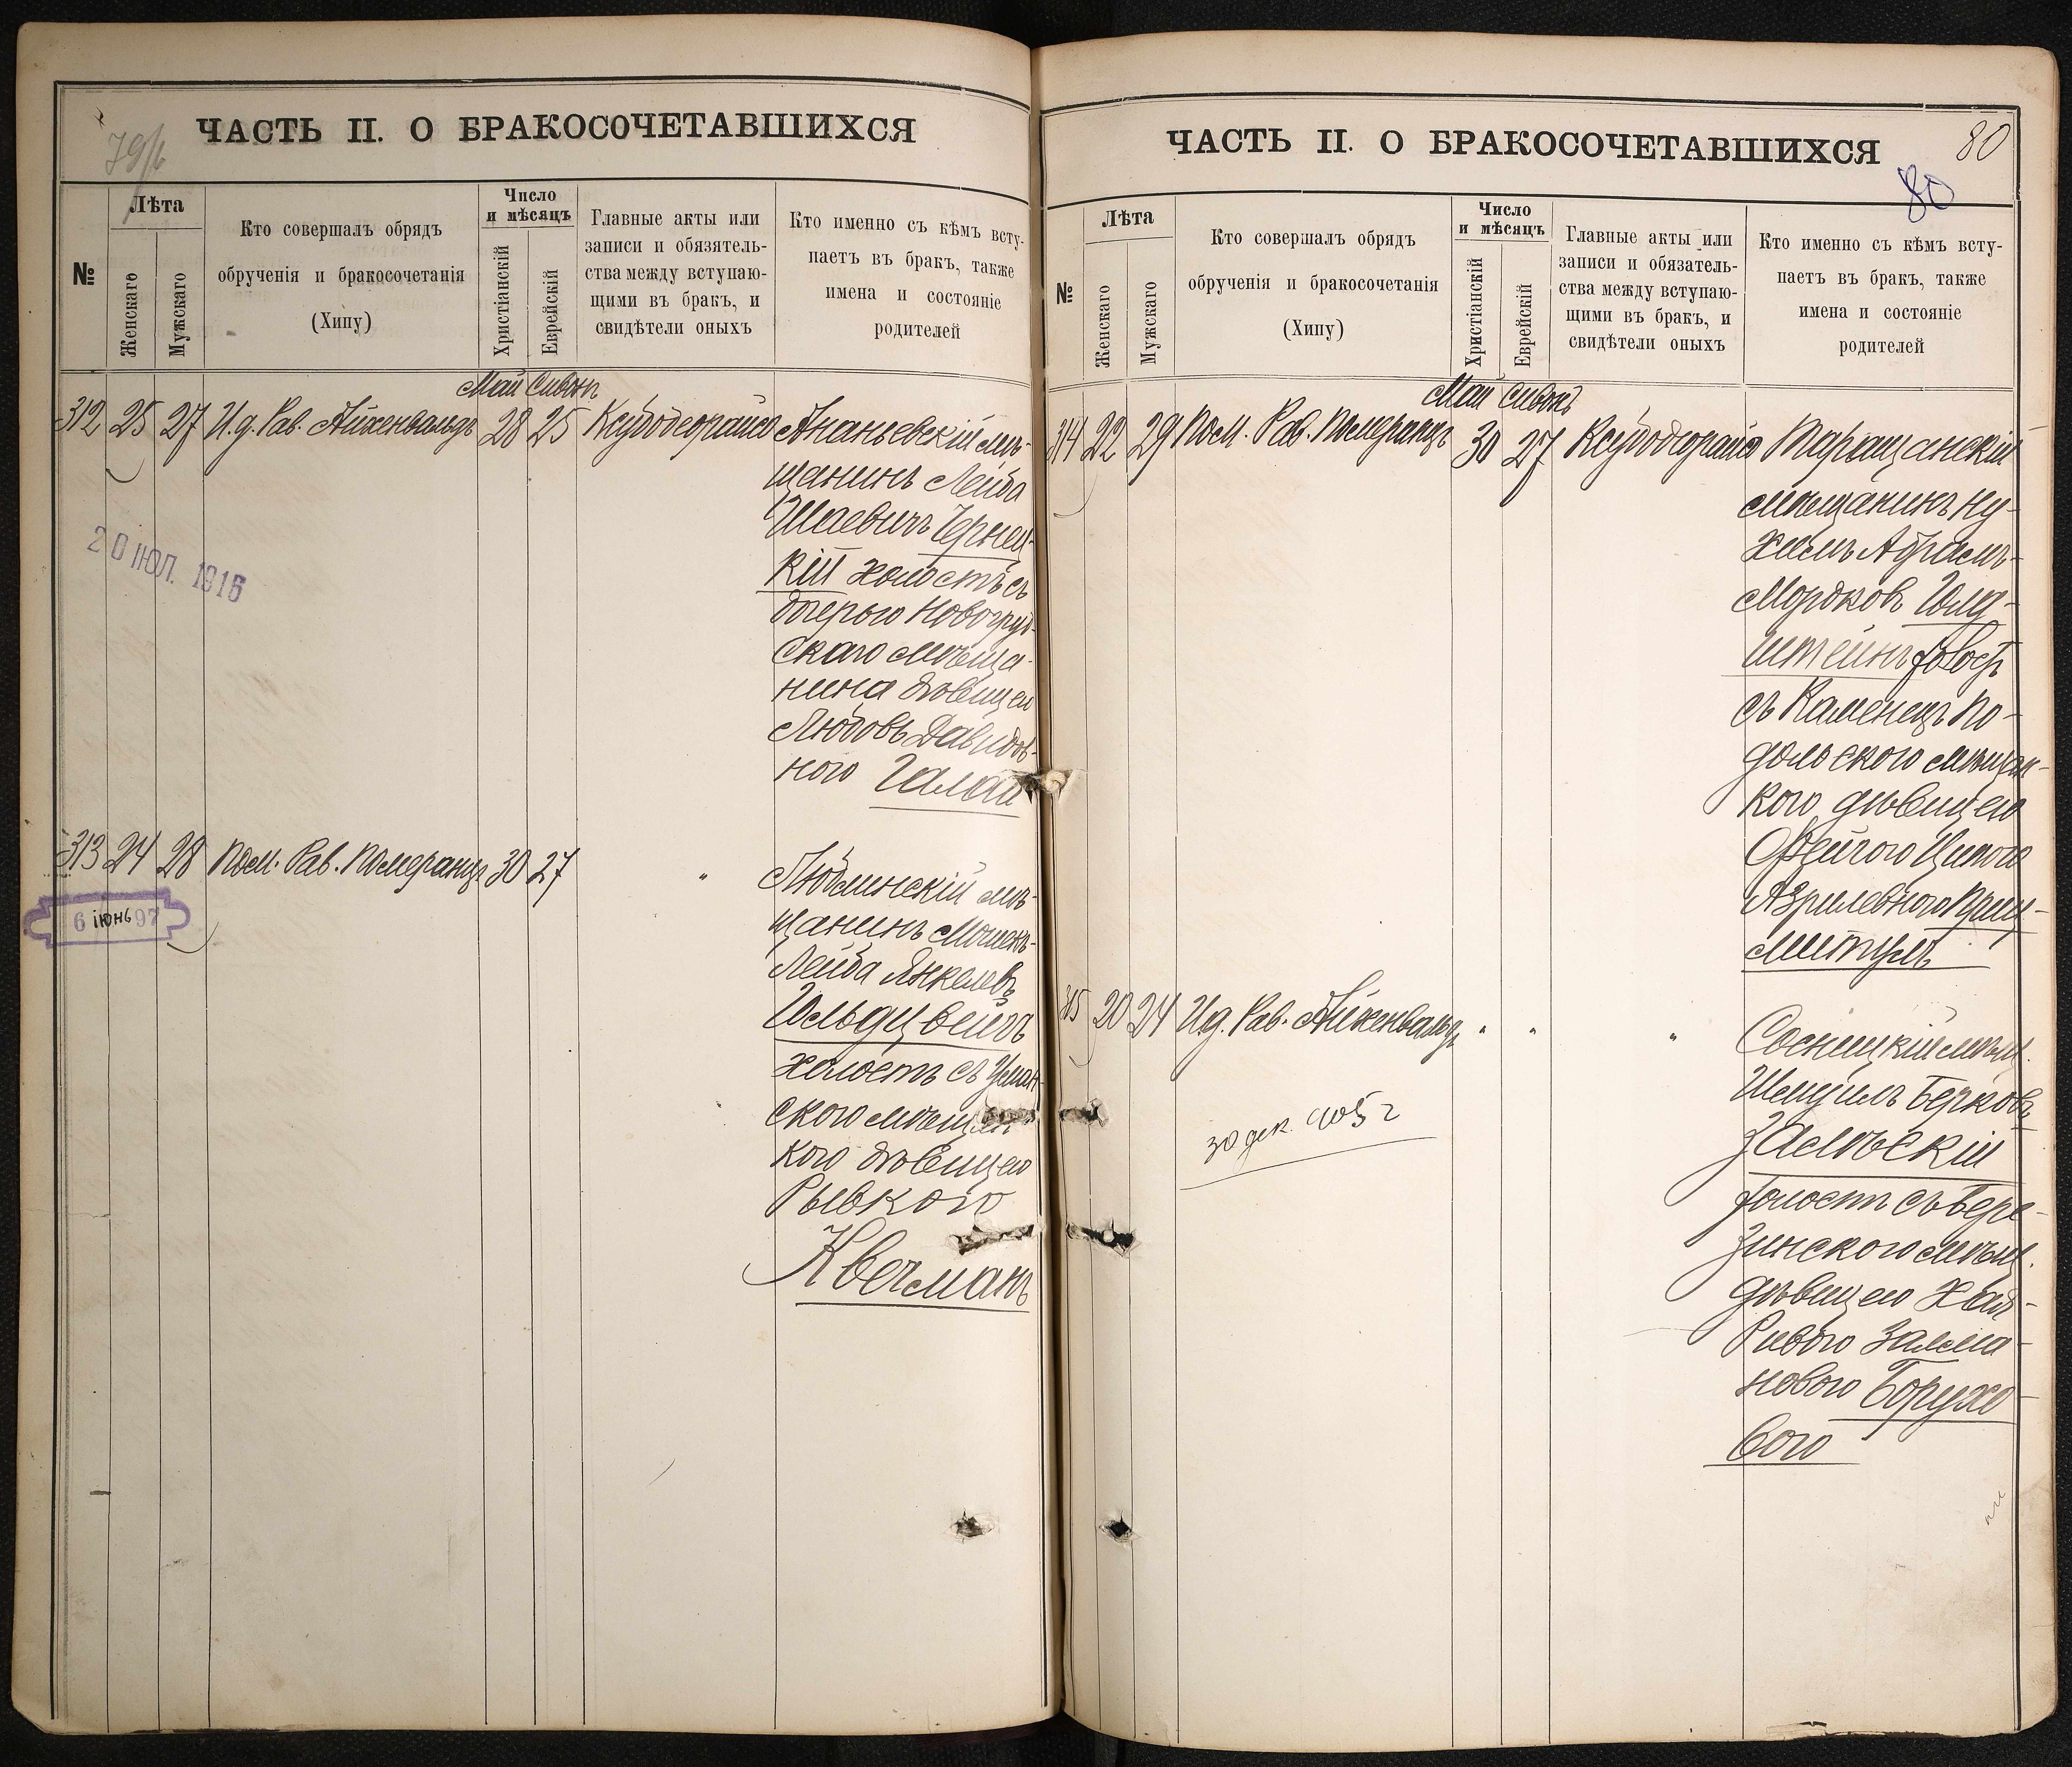 79/б
ЧАСТЬ II. О БРАКОСОЧЕТАВШИХСЯ
№
Лѣта
Женскаго
Мужскаго
Кто совершалъ обрядъ
обрученія и бракосочетанія
(Хипу)
Число
и мѣсяцъ
Христіанскій
Еврейскій
Главные акты или
записи и обязатель-
ства между вступаю-
щими въ бракъ, и
свидѣтели оныхъ
Кто именно съ кѣмъ всту-
паетъ въ бракъ, также
имена и состояніе
родителей
Май Сивонъ
312 25 27 И.д. Рав. Айхенвальдъ 28 25 Ананьевскій мѣ-
щанинъ Лейба
Шаевичъ Чернец-
кій холостъ съ
дочерью Новогруд-
скаго мѣща-
нина дѣвицею
Любовь Давидов-
ною
20 ІЮЛ. 1916
313 24 28 Пом. Рав. Померанцъ 30 27 " Люблинскій мѣ-
щанинъ Мошекъ-
Лейба Янкелевъ
Гольдцвейгъ
холостъ съ Уман-
скою мѣщан-
кою дѣвицею
Рывкою
Квечманъ
6 іюнь 97
80
ЧАСТЬ II. О БРАКОСОЧЕТАВШИХСЯ
80
№
Лѣта
Женскаго
Мужскаго
Кто совершалъ обрядъ
обрученія и бракосочетанія
(Хипу)
Число
и мѣсяцъ
Христіанскій
Еврейскій
Главные акты или
записи и обязатель-
ства между вступаю-
щими въ бракъ, и
свидѣтели оныхъ
Кто именно съ кѣмъ всту-
паетъ въ бракъ, также
имена и состояніе
родителей
Май Сивонъ
314 22 29 Пом. Рав. Померанцъ 30 27 Таращанскій
мѣщанинъ Ну-
химъ Абрамъ-
Мордковъ Гольд-
штейнъ холостъ
съ Каменецъ По-
дольскою мѣщан-
кою дѣвицею
Фейгою Ципою
Азрилевною
315 20 24 И.д. Рав. Айхенвальдъ " " " Сосницкій мѣщ.
Берковъ
Замѣскій
холостъ съ Бере-
зинскою мѣщ.
дѣвицею Хая-
Ривою Залма-
новою Борухо-
вою
30 дек. 905 г